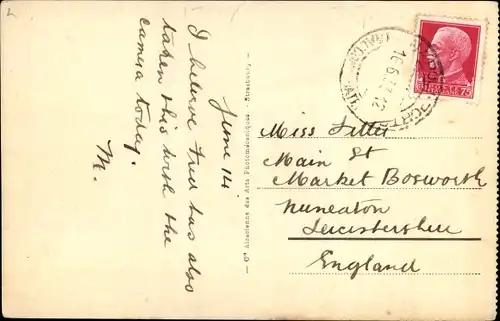 June 14
I believe Fred has also
taken this with the
camera today.
M.
Alsacienne des Arts Photomécaniques - Strasbourg
Miss
Main St
Market Bosworth
Nuneaton
Leicestershire
England
75